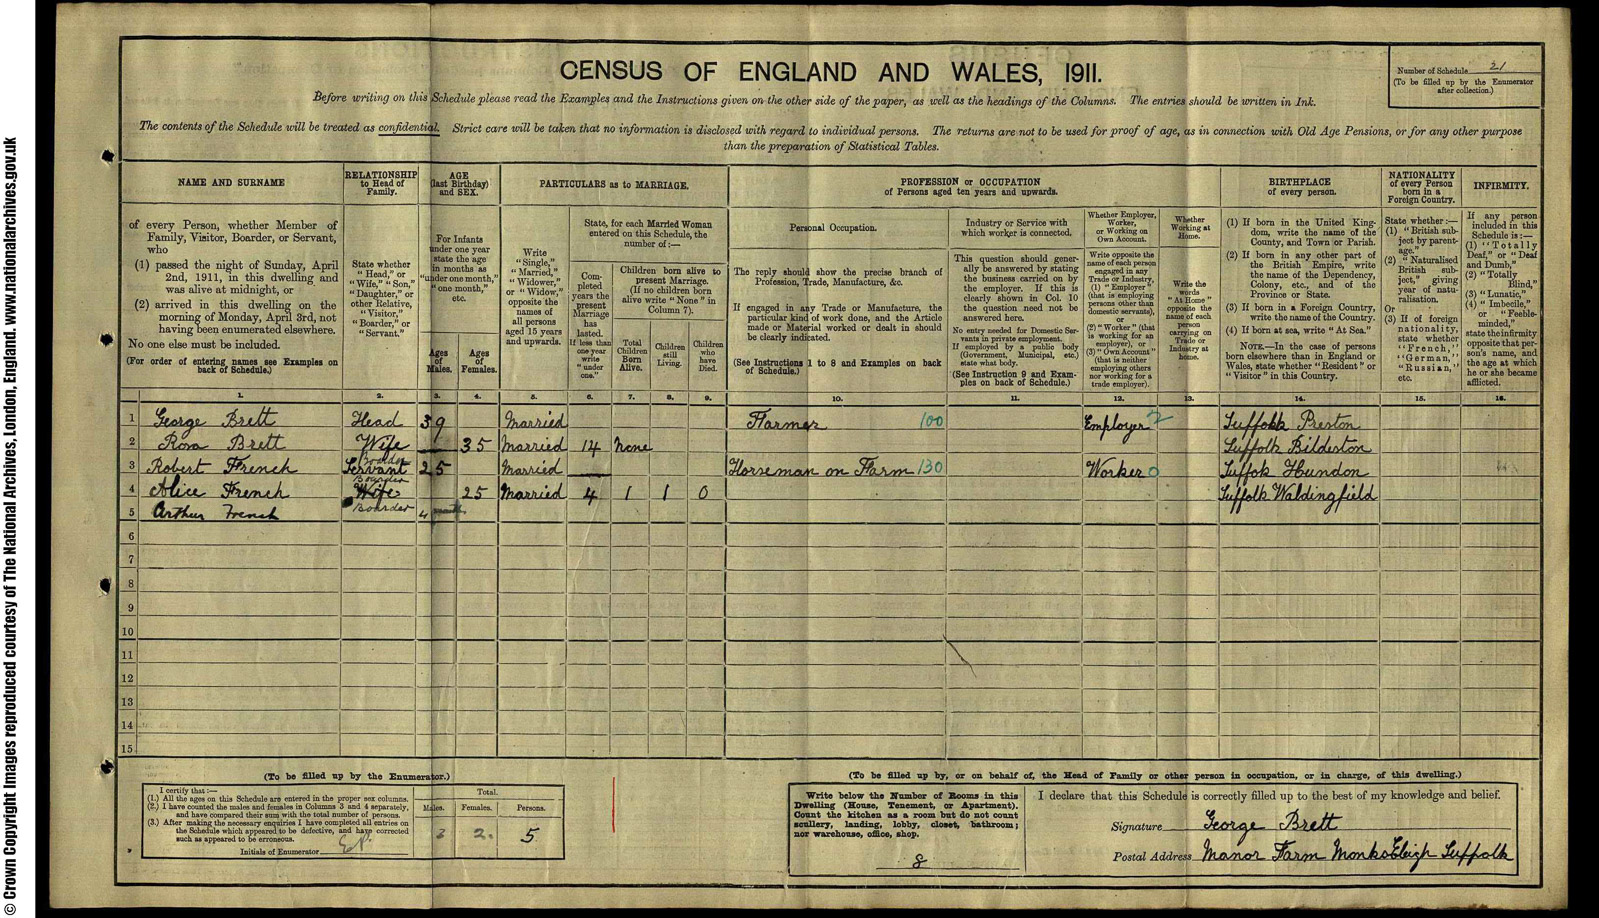 © Crown Copyright Images reproduced courtesy of The National Archives, London, England. www.nationalarchives.gov.uk
CENSUS OF ENGLAND AND WALES, 1911.
Number of Schedule 21
(To be filled up by the Enumerator
after collection.)
Before writing on this Schedule please read the Examples and the Instructions given on the other side of the paper, as well as the headings of the Columns. The entries should be written in Ink.
The contents of the Schedule will be treated as confidential. Strict care will be taken that no information is disclosed with regard to individual persons. The returns are not to be used for proof of age, as in connection with Old Age Pensions, or for any other purpose
than the preparation of Statistical Tables.
NAME AND SURNAME
of every Person, whether Member of
Family, Visitor, Boarder, or Servant,
who
(1) passed the night of Sunday, April
2nd, 1911, in this dwelling and
was alive at midnight, or
(2) arrived in this dwelling on the
morning of Monday, April 3rd, not
having been enumerated elsewhere.
No one else must be included.
(For order of entering names see Examples on
back of Schedule.)
RELATIONSHIP
to Head of
Family.
State whether
"Head," or
"Wife," "Son,"
"Daughter," or
other Relative,
"Visitor,"
"Boarder," or
"Servant."
AGE
(last Birthday)
and SEX.
For Infants
under one year
state the age
in months as
"under one month,"
"one month,"
etc.
Ages
of
Males.
Ages
of
Females.
PARTICULARS as to MARRIAGE.
Write
"Single,"
"Married,"
"Widower,"
or "Widow,"
opposite the
names of
all persons
aged 15 years
and upwards.
State, for each Married Woman
entered on this Schedule, the
number of:—
Com-
pleted
years the
present
Marriage
has
lasted.
If less than
one year
write
"under
one."
Children born alive to
present Marriage.
(If no children born
alive write "None" in
Column 7).
Total
Children
Born
Alive.
Children
still
Living.
Children
who
have
Died.
PROFESSION or OCCUPATION
of Persons aged ten years and upwards.
Personal Occupation.
The reply should show the precise branch of
Profession, Trade, Manufacture, &c.
If engaged in any Trade or Manufacture, the
particular kind of work done, and the Article
made or Material worked or dealt in should
be clearly indicated.
(See Instructions 1 to 8 and Examples on back
of Schedule.)
Industry or Service with
which worker is connected.
This question should gener-
ally be answered by stating
the business carried on by
the employer. If this is
clearly shown in Col. 10
the question need not be
answered here.
No entry needed for Domestic Ser-
vants in private employment.
If employed by a public body
(Government, Municipal, etc.)
state what body.
(See Instruction 9 and Exam-
ples on back of Schedule.)
Whether Employer,
Worker,
or Working on
Own Account.
Write opposite the
name of each person
engaged in any
Trade or Industry,
(1) "Employer"
(that is employing
persons other than
domestic servants),
or
(2) "Worker" (that
is working for an
employer), or
(3) "Own Account"
(that is neither
employing others
nor working for a
trade employer).
Whether
Working at
Home.
Write the
words
"At Home"
opposite the
name of each
person
carrying on
Trade or
Industry at
home.
BIRTHPLACE
of every person.
(1) If born in the United King-
dom, write the name of the
County, and Town or Parish.
(2) If born in any other part of
the British Empire, write
the name of the Dependency,
Colony, etc., and of the
Province or State.
(3) If born in a Foreign Country,
write the name of the Country.
(4) If born at sea, write "At Sea."
NOTE.—In the case of persons
born elsewhere than in England or
Wales, state whether "Resident" or
"Visitor" in this Country.
NATIONALITY
of every Person
born in a
Foreign Country.
State whether:—
(1) "British sub-
ject by parent-
age."
(2) "Naturalised
British sub-
ject," giving
year of natu-
ralisation.
Or
(3) If of foreign
nationality,
state whether
"French,"
"German,"
"Russian,"
etc.
INFIRMITY.
If any person
included in this
Schedule is:—
(1) "Totally
Deaf," or "Deaf
and Dumb,"
(2) "Totally
Blind,"
(3) "Lunatic,"
(4) "Imbecile,"
or "Feeble-
minded,"
state the infirmity
opposite that per-
son's name, and
the age at which
he or she became
afflicted.
1. 2. 3. 4. 5. 6. 7. 8. 9. 10. 11. 12. 13. 14. 15. 16.
1 George Brett Head 39 Married Farmer 100 Employer 2 Suffolk Preston
2 Rosa Brett Wife 35 Married 14 None Suffolk Bildeston
Boarder
3 Robert French Servant 25 Married Horseman on Farm 130 Worker 0 Suffok Hundon
Boarder
4 Alice French Wife 25 Married 4 1 1 0 Suffolk Waldingfield
5 Arthur French Boarder 4 months
6
7
8
9
10
11
12
13
14
15
(To be filled up by the Enumerator.)
I certify that:—
(1.) All the ages on this Schedule are entered in the proper sex columns.
(2.) I have counted the males and females in Columns 3 and 4 separately,
and have compared their sum with the total number of persons.
(3.) After making the necessary enquiries I have completed all entries on
the Schedule which appeared to be defective, and have corrected
such as appeared to be erroneous.
Initials of Enumerator
Total.
Males. Females. Persons.
3 2. 5
(To be filled up by, or on behalf of, the Head of Family or other person in occupation, or in charge, of this dwelling.)
Write below the Number of Rooms in this
Dwelling (House, Tenement, or Apartment).
Count the kitchen as a room but do not count
scullery, landing, lobby, closet, bathroom;
nor warehouse, office, shop.
8
I declare that this Schedule is correctly filled up to the best of my knowledge and belief.
Signature George Brett
Postal Address Manor Farm Monks Eleigh Suffolk